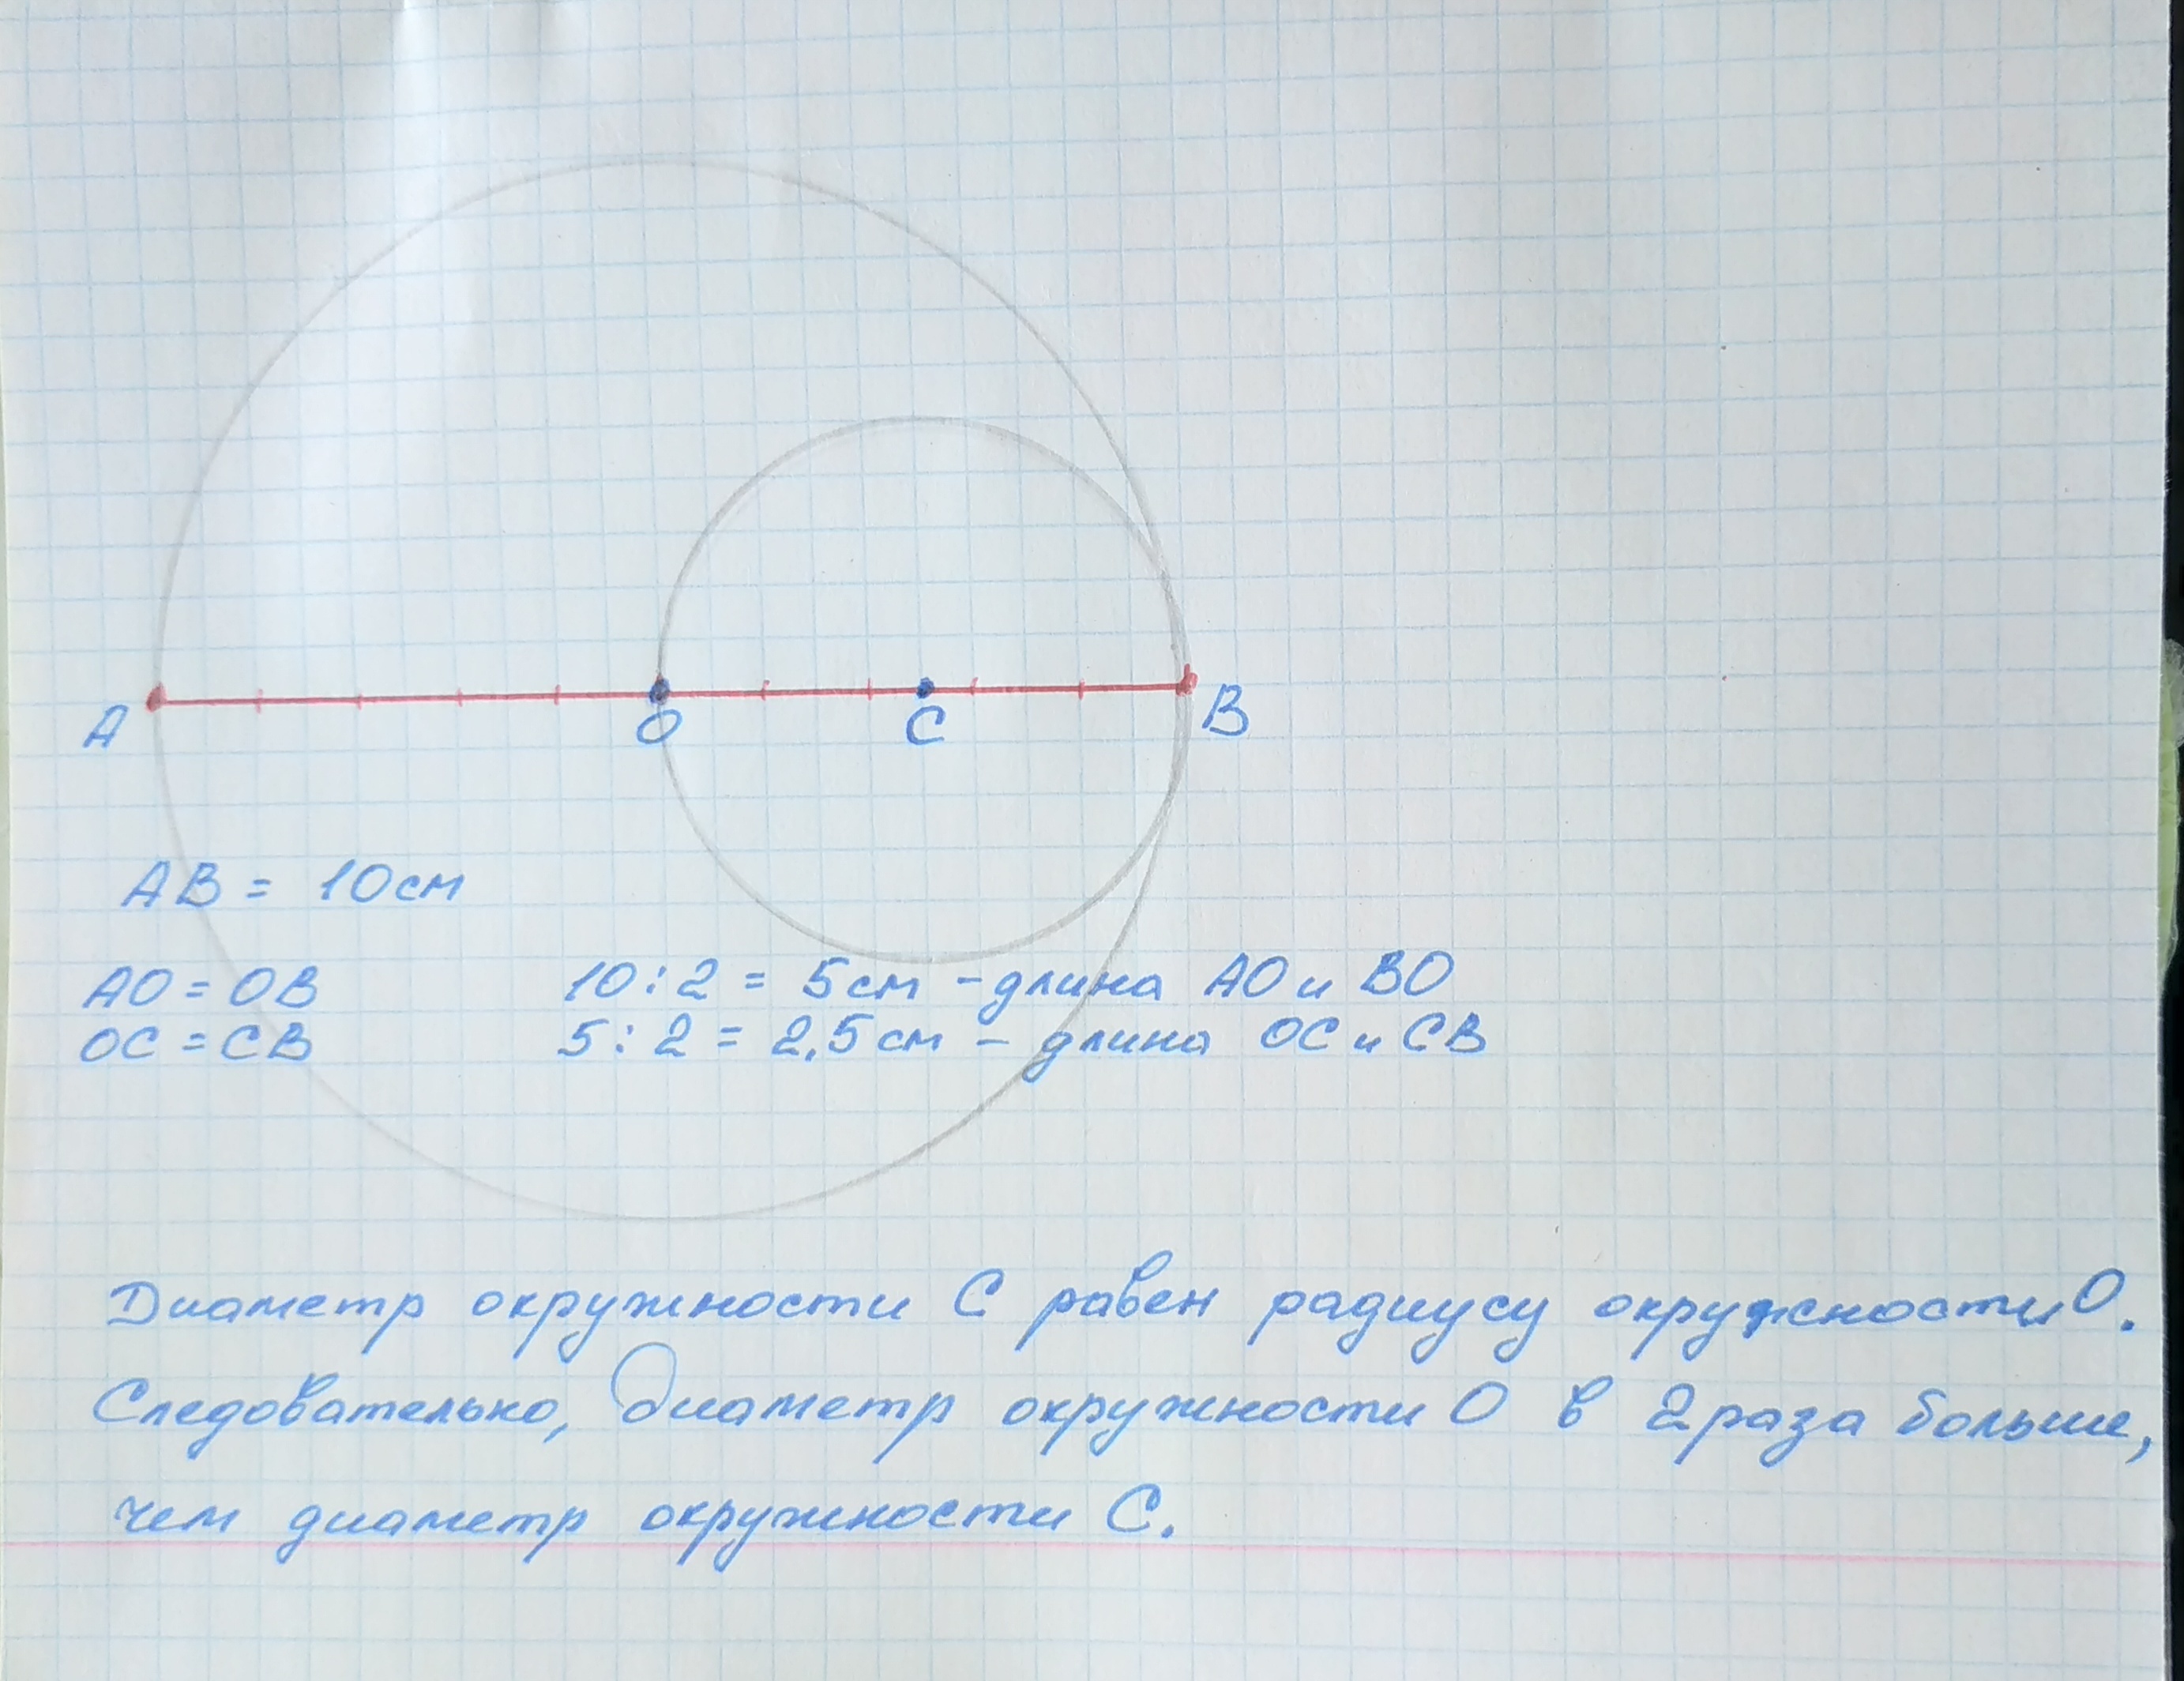 А О С В
АВ = 10см
АО = ОВ 10:2 = 5см - длина АО и ВО
ОС = СВ 5:2 = 2,5см - длина ОС и СВ
Диаметр окружности С равен радиусу окружности О.
Следовательно, диаметр окружности О в 2 раза больше,
чем диаметр окружности С.